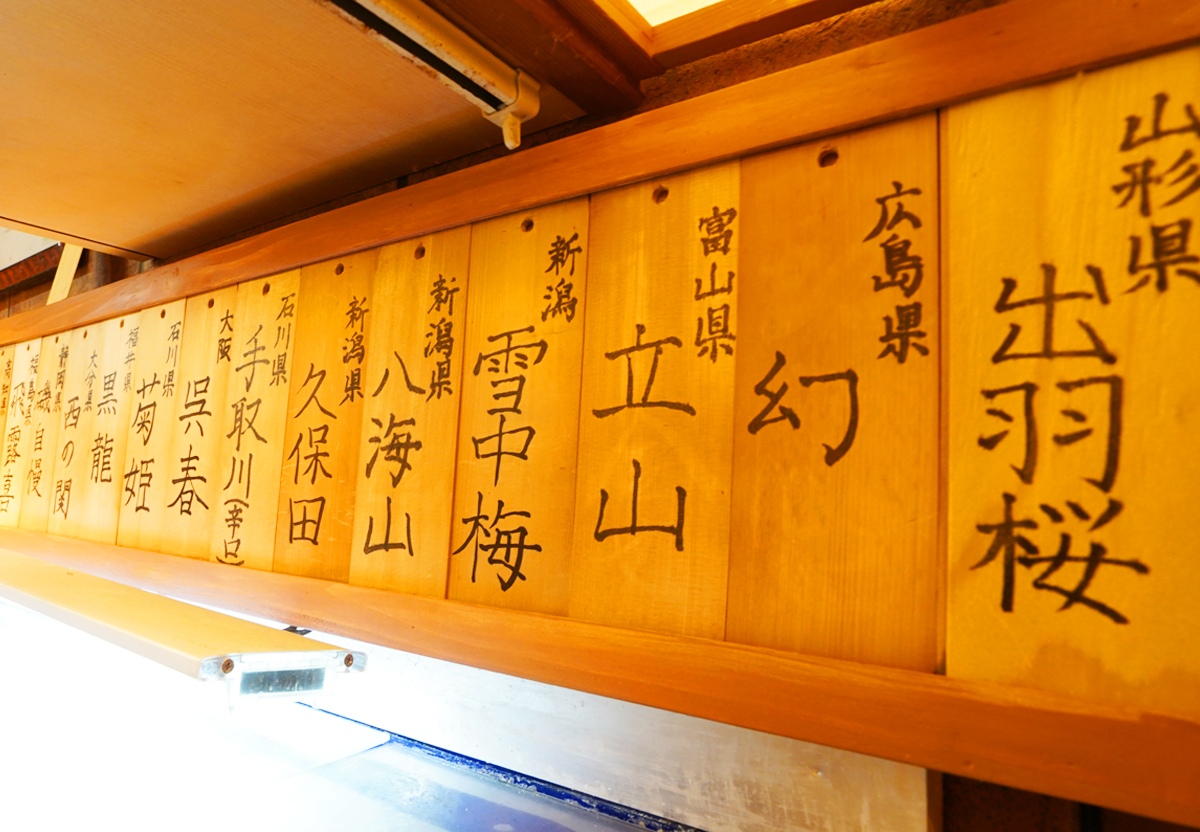 山形県
出羽桜
広島県
幻
富山県
立山
新潟
雪中梅
新潟県
八海山
新潟県
久保田
石川県
手取川(辛口)
大阪
呉春
石川県
菊姫
福井県
黒龍
大分県
西の関
静岡県
磯自慢
福島県
飛露喜
高知県